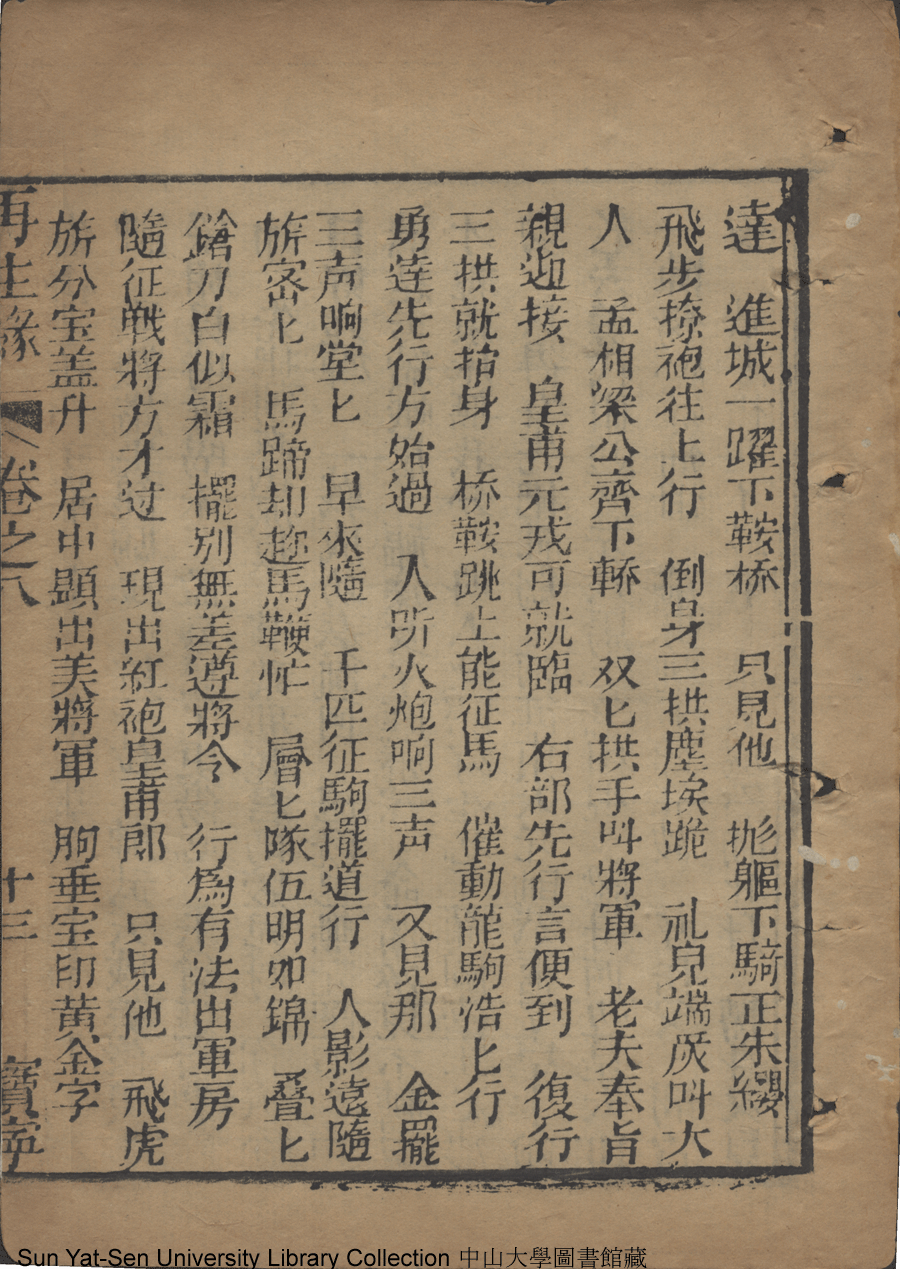 達　進城一躍下鞍桥　只見他　抛軀下騎正朱纓
飛步撩袍往上行　倒身三拱塵埃跪　礼皃端庄叫大
人　孟相梁公齊下轎　双匕拱手叫將軍　老夫奉旨
親迎接　皇甫元戎可就臨　右部先行言便到　復行
三拱就抬身　桥鞍跳上能征馬　催動龍駒浩匕行
勇逹先行方始過　入听火炮响三声　又見那　金擺
三声响堂匕　早來隨　千匹征駒擺道行　人影遠隨
旂密匕　馬蹄却趂馬鞭忙　層匕隊伍明如錦　叠匕
鎗刀白似霜　擺别無差遵將令　行爲有法出軍房
隨征戰將方才过　現出紅袍皇甫郎　只見他　飛虎
旂分宝盖升　居中顕出美將軍　胸垂宝印黄金字
再生緣　卷之八　十三　寶寧
Sun Yat-Sen University Library Collection 中山大學圖書館藏